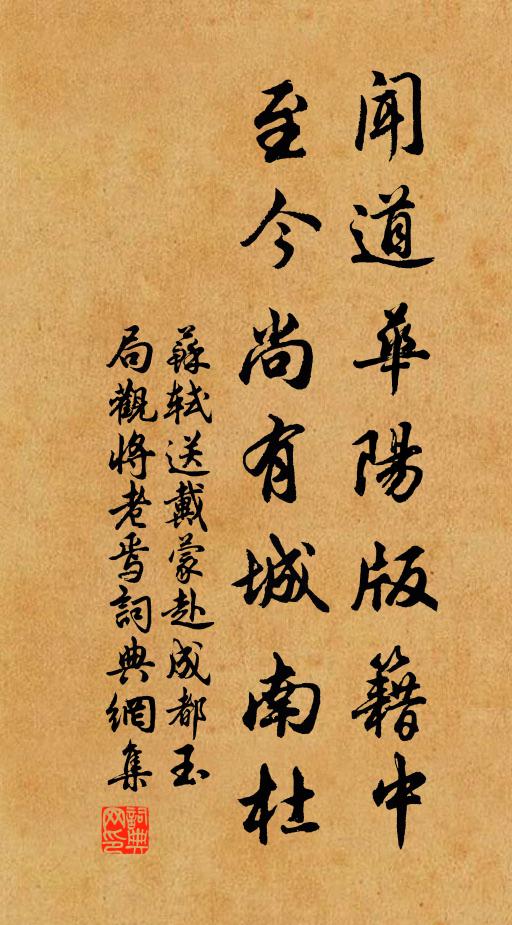 闻道華陽版籍中
至今尚有城南杜
蘇軾送戴蒙赴成都玉
局觀将老焉詞典網集
詞典
网印